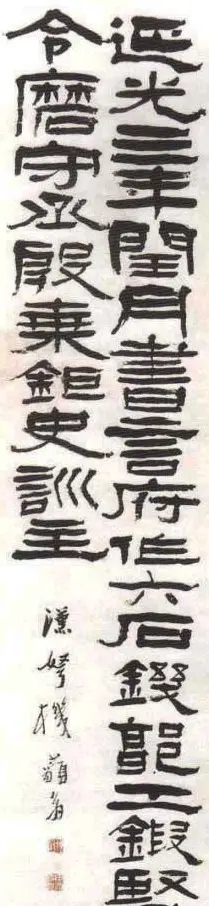 延光三年閏月書言府作六石鐖郭工鍜
令磨守丞殷乘鉅史訓主
漢弩機